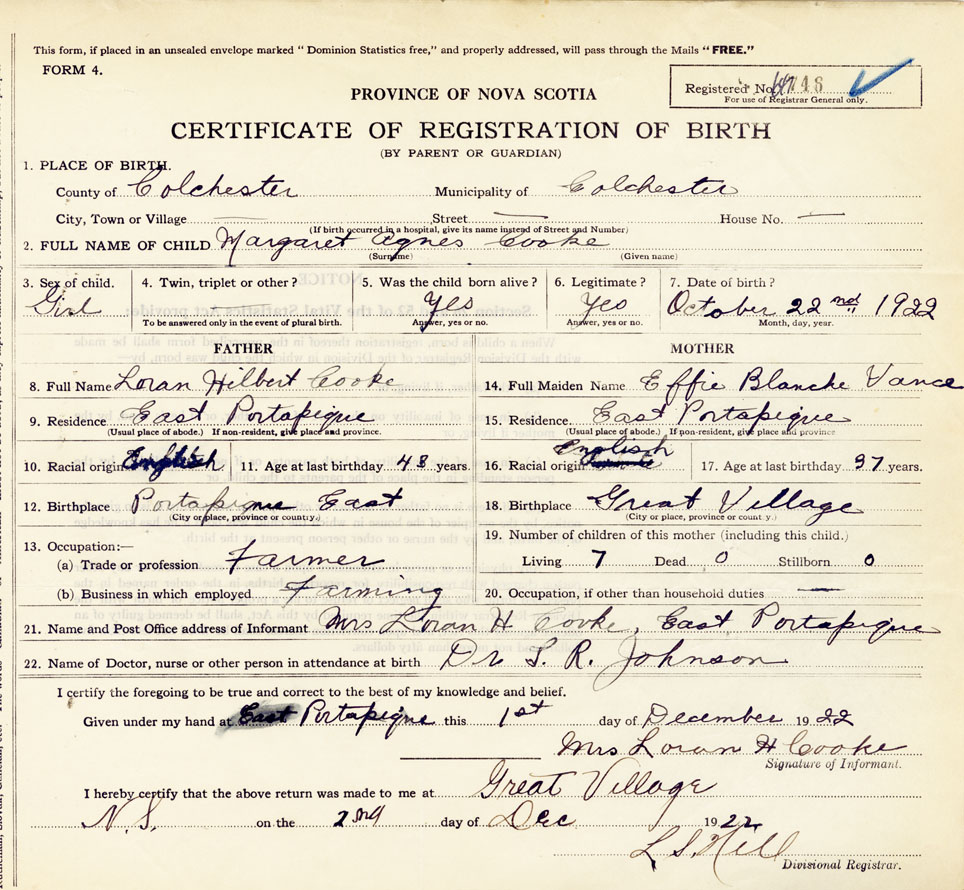 This form, if placed in an unsealed envelope marked "Dominion Statistics free," and properly addressed, will pass through the Mails "FREE."
FORM 4.
Registered No.
For use of Registrar General only.
PROVINCE OF NOVA SCOTIA
CERTIFICATE OF REGISTRATION OF BIRTH
(BY PARENT OR GUARDIAN)
1. PLACE OF BIRTH.
County of Colchester Municipality of Colchester
City, Town or Village — Street — House No. —
(If birth occurred in a hospital, give its name instead of Street and Number)
2. FULL NAME OF CHILD Margaret Agnes Cooke
(Surname) (Given name)
3. Sex of child. 4. Twin, triplet or other? 5. Was the child born alive? 6. Legitimate? 7. Date of birth?
Girl — Yes Yes October 22nd 1922
To be answered only in the event of plural birth. Answer, yes or no. Answer, yes or no. Month, day, year.
FATHER MOTHER
8. Full Name Loran Hilbert Cooke 14. Full Maiden Name Effie Blanche Vance
9. Residence East Portapique 15. Residence East Portapique
(Usual place of abode.) If non-resident, give place and province. (Usual place of abode.) If non-resident, give place and province
10. Racial origin English 11. Age at last birthday 43 years. 16. Racial origin English 17. Age at last birthday 37 years.
12. Birthplace Portapique East 18. Birthplace Great Village
(City or place, province or country.) (City or place, province or country.)
13. Occupation:— 19. Number of children of this mother (including this child.)
(a) Trade or profession Farmer Living 7 Dead 0 Stillborn 0
(b) Business in which employed Farming 20. Occupation, if other than household duties —
21. Name and Post Office address of Informant Mrs Loran H Cooke, East Portapique
22. Name of Doctor, nurse or other person in attendance at birth Dr T. R. Johnson
I certify the foregoing to be true and correct to the best of my knowledge and belief.
Given under my hand at East Portapique this 1st day of December 1922
Mrs Loran H Cooke
Signature of Informant.
I hereby certify that the above return was made to me at Great Village
N.S. on the 2nd day of Dec 1922
L S. Hill
Divisional Registrar.